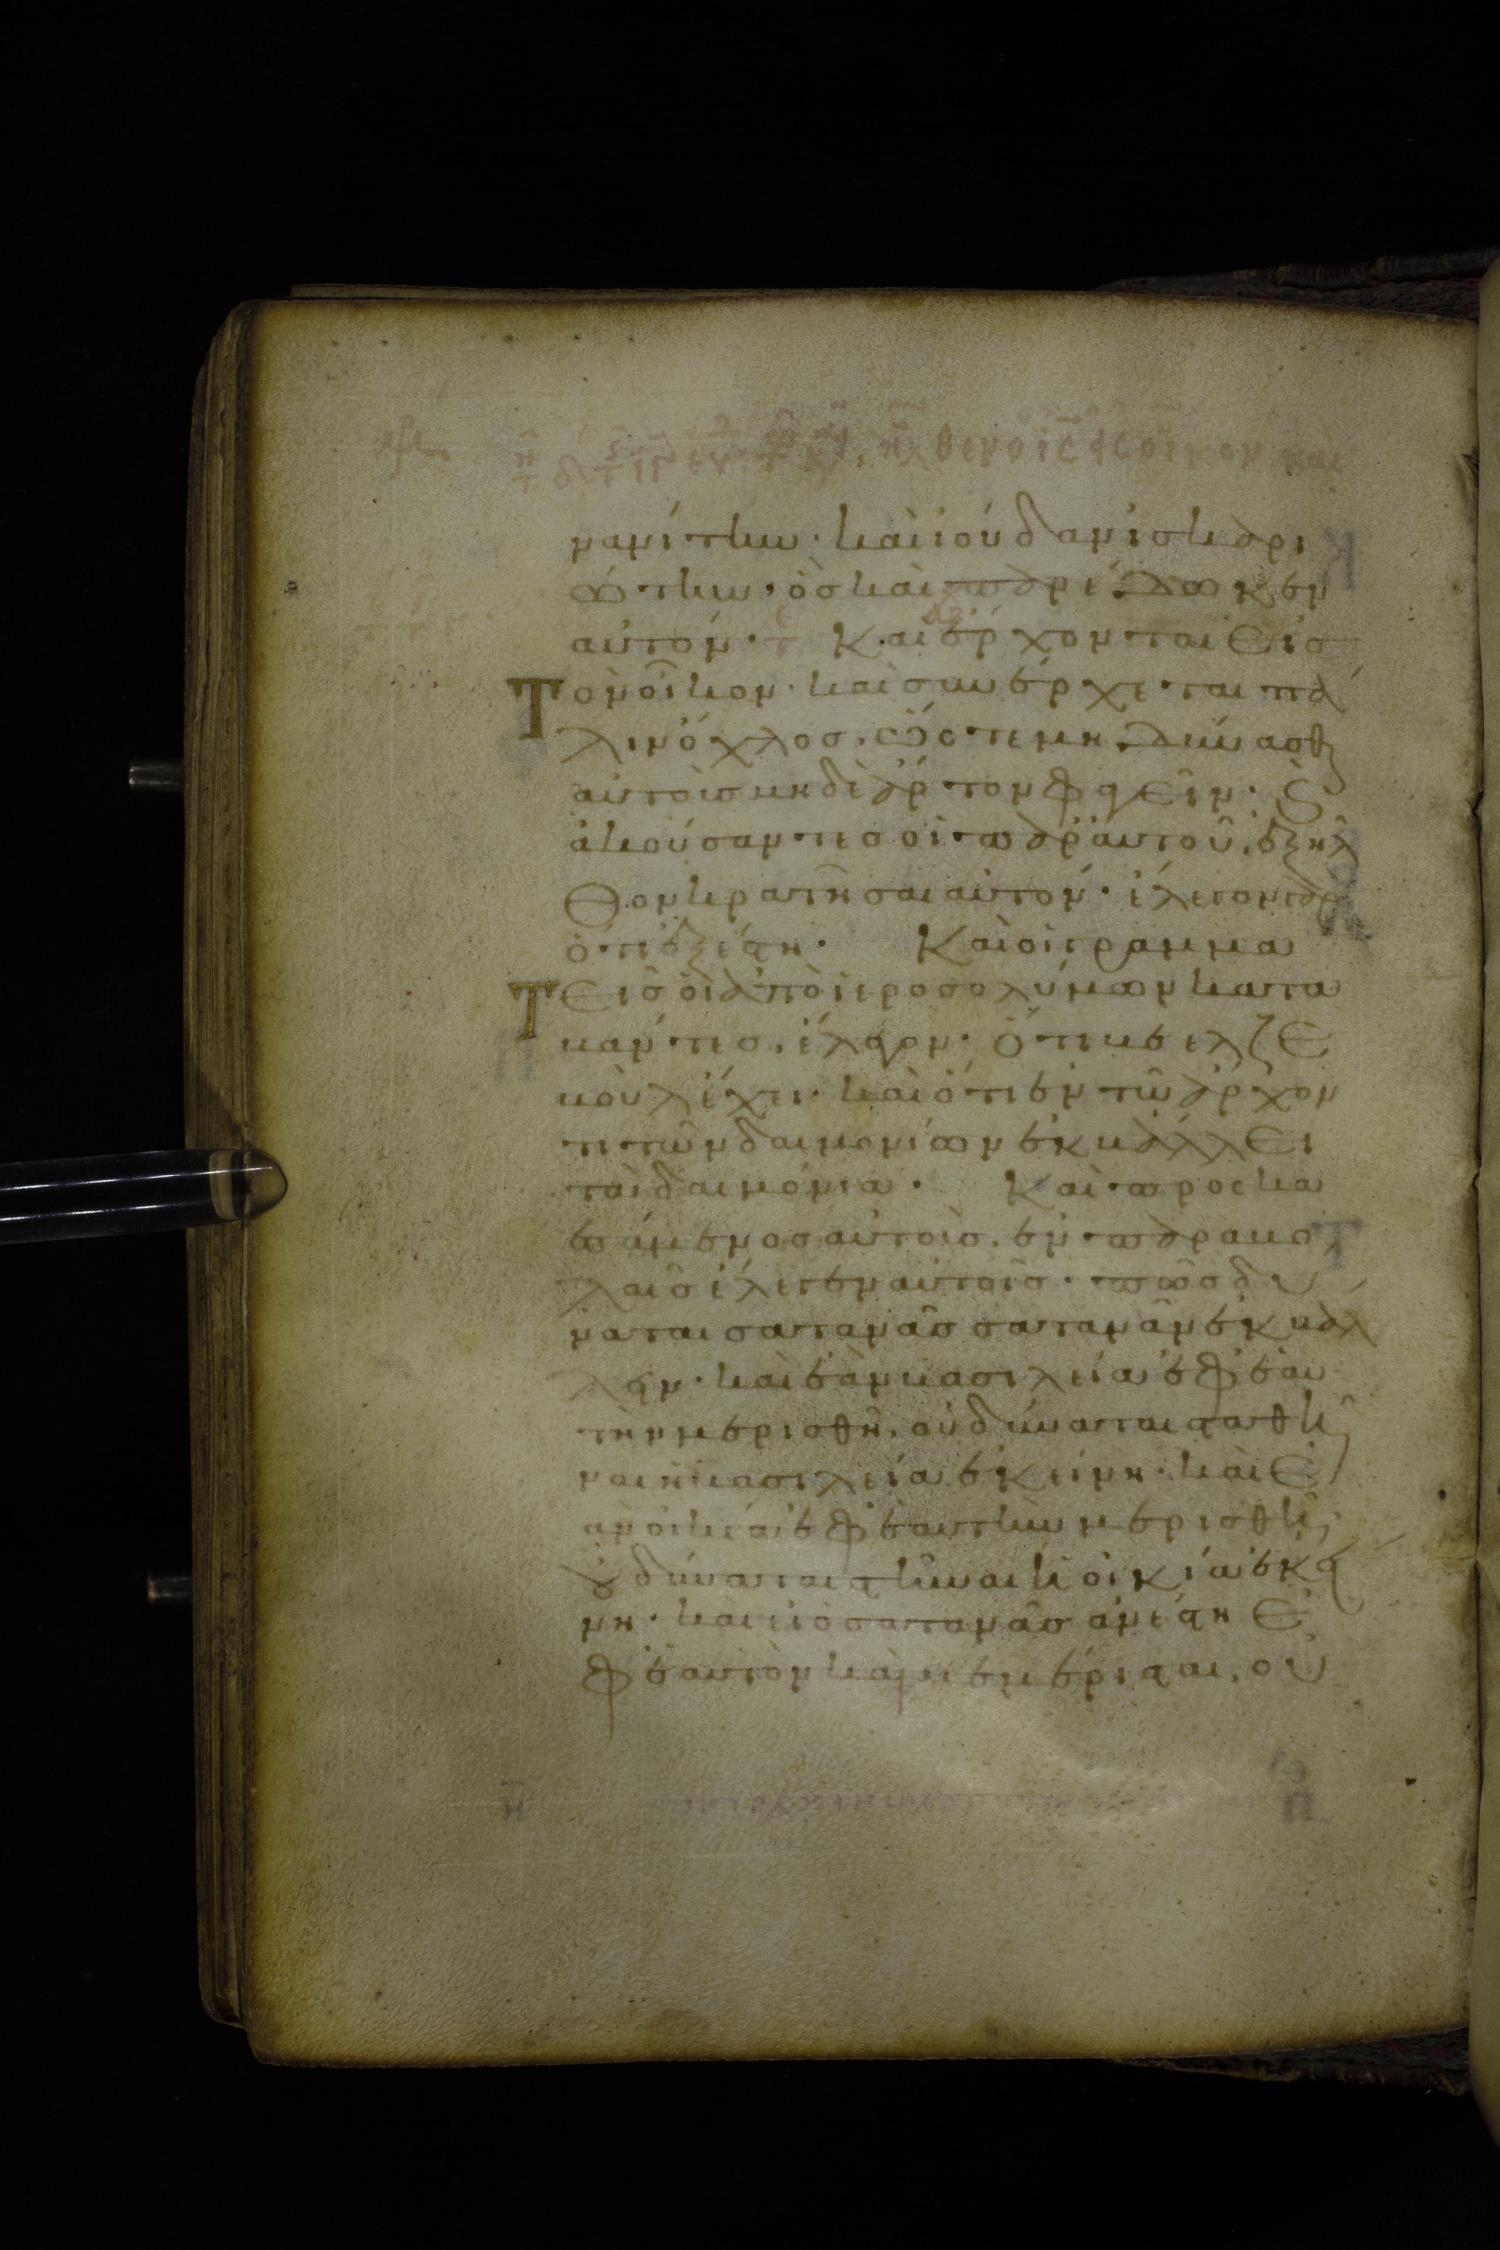 ἦλθεν ὁ ἰς εἰς οἶκον καὶ
νανίτην· καὶ ἰούδαν ἰσκαρι
ώτην· ὃς καὶ παρέδωκεν
αὐτόν· Καὶ ἔρχονται εἰσ
Τὸν οἶκον· καὶ συνέρχεται πά
λιν ὄχλος, ὥστε μὴ δύνασθαι
αὐτοὺς μηδὲ ἄρτον φαγεῖν· καὶ
ἀκούσαντες οἱ παρ' αὐτοῦ, ἐξῆλ
θον κρατῆσαι αὐτόν· ἔλεγον γὰρ
ὅτι ἐξέστη· Καὶ οἱ γραμμα
Τεῖς οἱ ἀπὸ ἱεροσολύμων κατα
βάντες, ἔλεγον· ὅτι βεελζε
βοὺλ ἔχει· καὶ ὅτι ἐν τῷ ἄρχον
τι τῶν δαιμονίων ἐκβάλλει
τὰ δαιμόνια· Καὶ προσκα
λεσάμενος αὐτοὺς, ἐν παραβο
λαῖς ἔλεγεν αὐτοῖς· πῶς δύ
ναται σατανᾶς σατανᾶν ἐκβάλ
λειν· καὶ ἐὰν βασιλεία ἐφ' ἑαυ
τὴν μερισθῆ, οὐ δύναται σταθῆ
ναι ἡ βασιλεία ἐκείνη· καὶ ἐ
ὰν οἰκία ἐφ' ἑαυτὴν μερισθῆ,
οὐ δύναται στῆναι ἡ οἰκία ἐκεί
νη· καὶ εἰ ὁ σατανᾶς ἀνέστη ἐ
φ' ἑαυτὸν καὶ μεμέρισται, οὐ